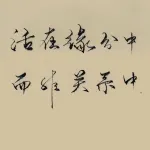 活在缘分中
而非关系中